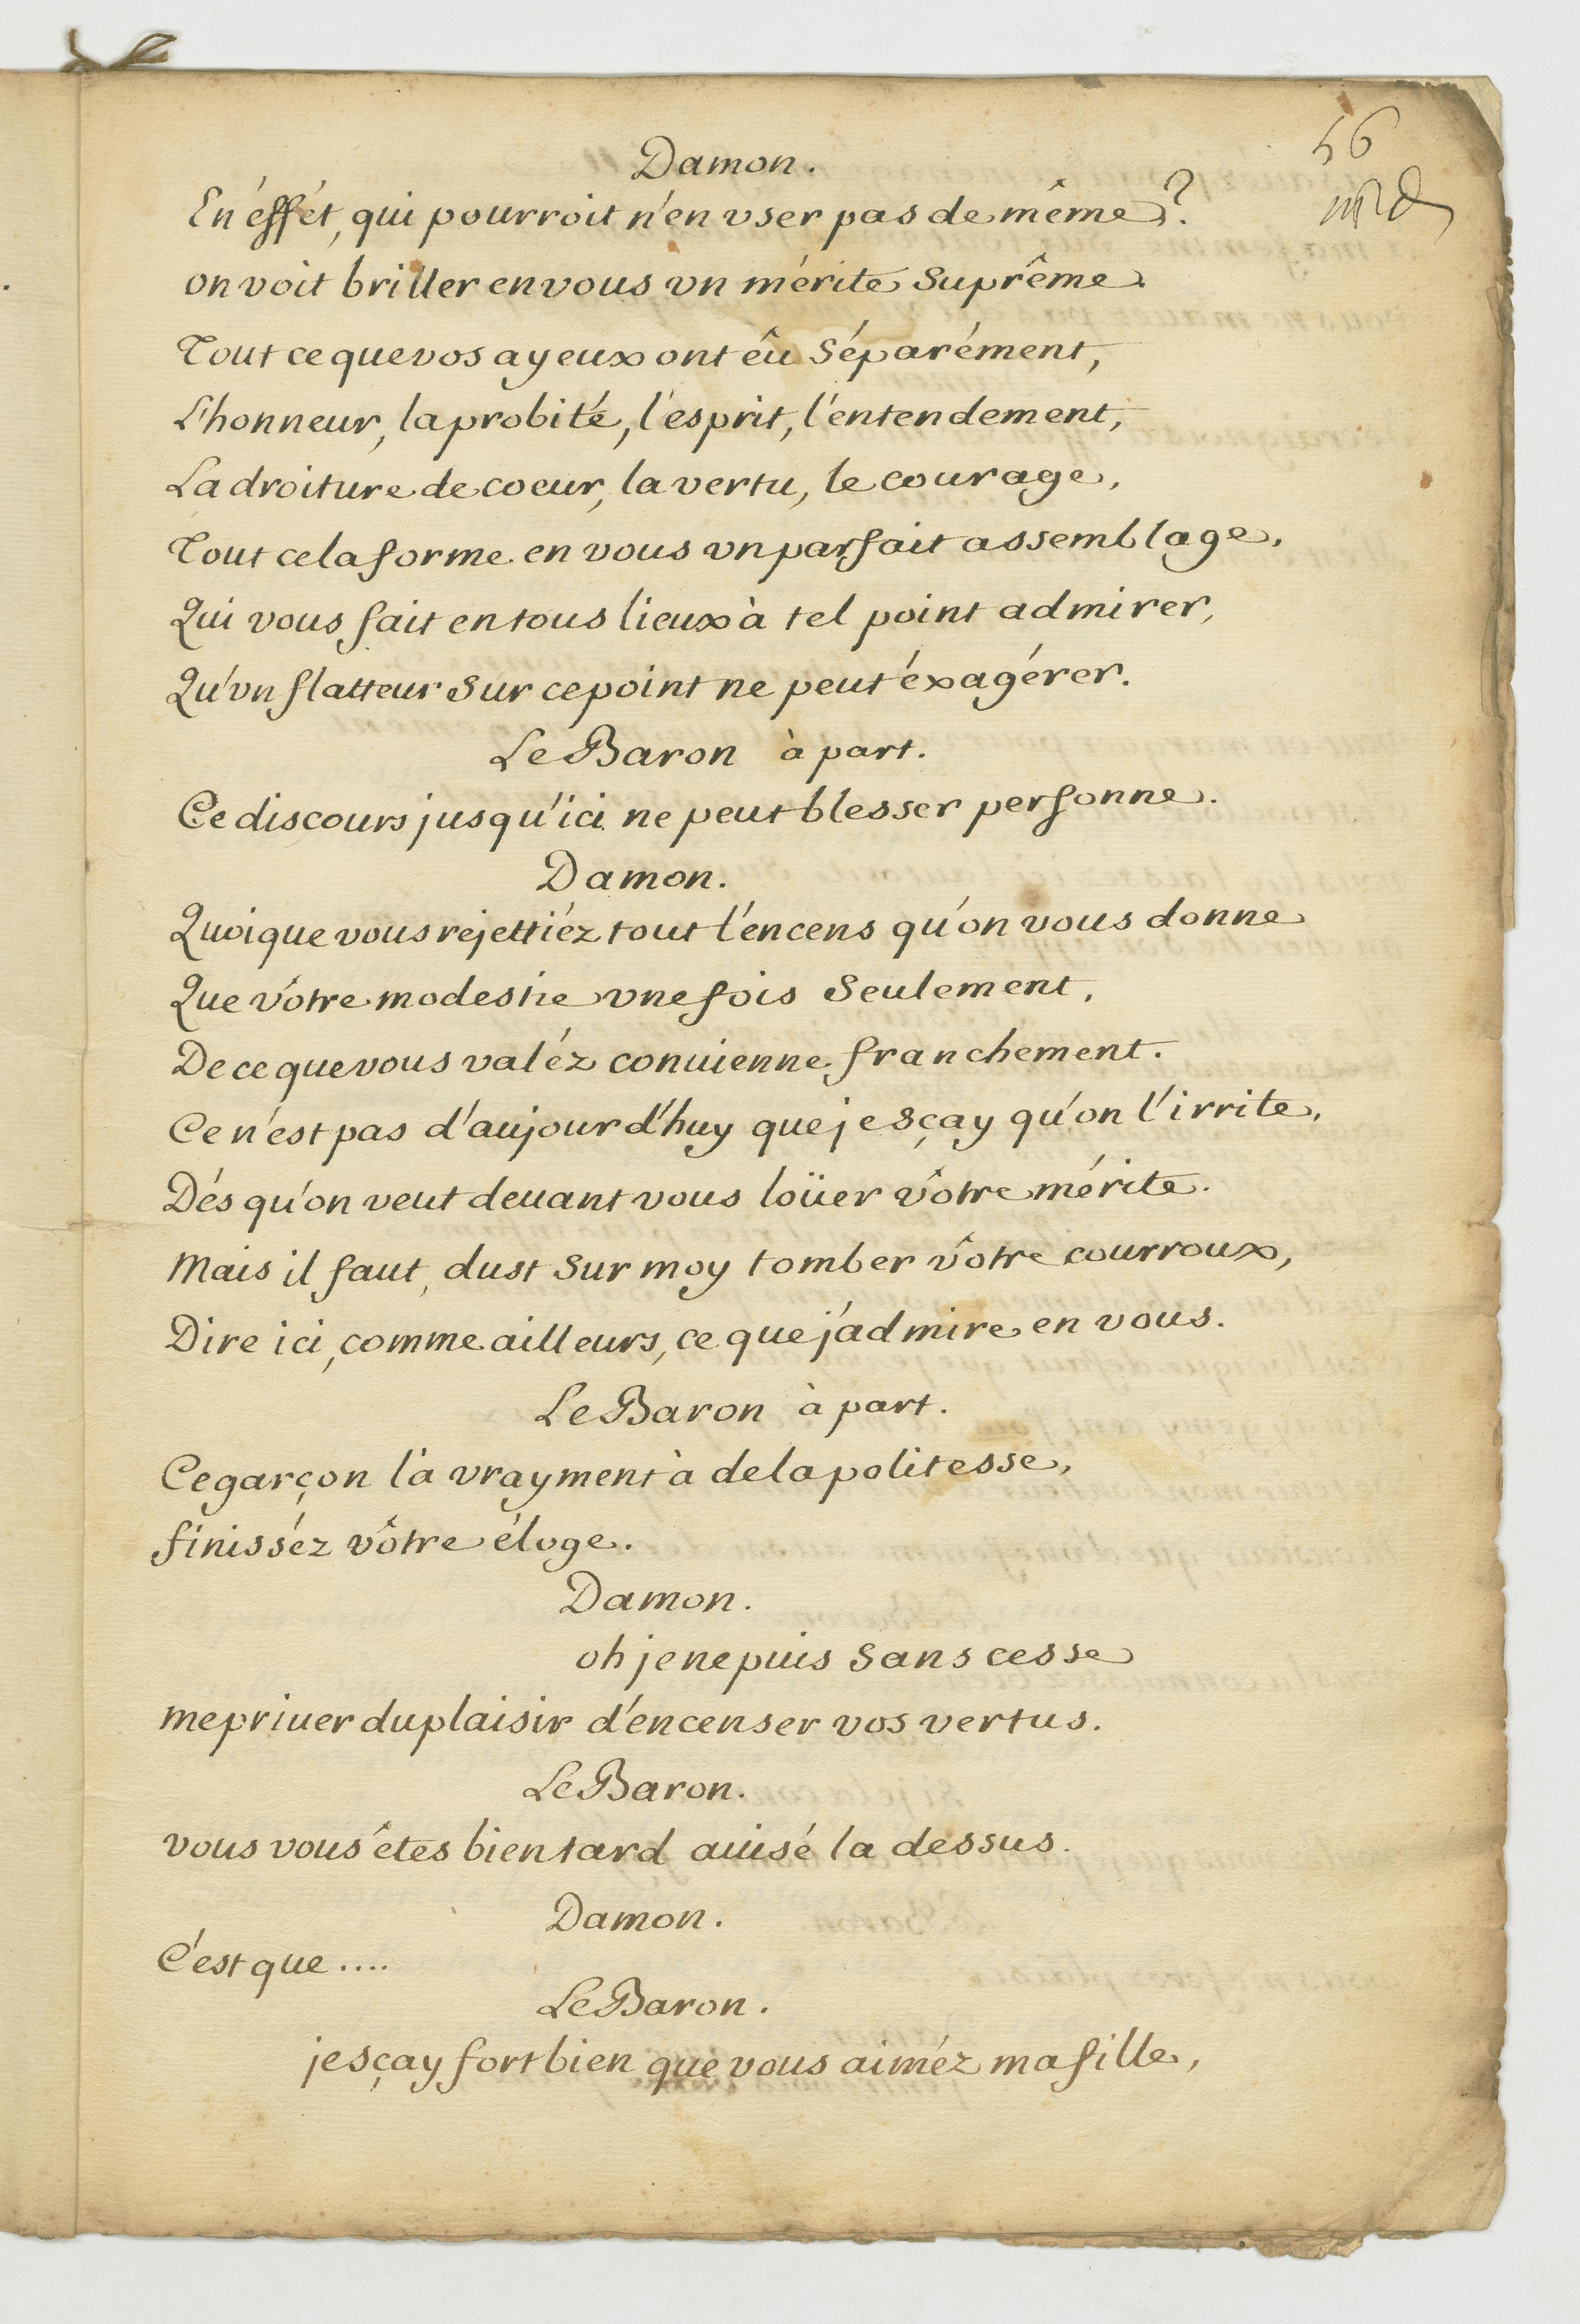 56
Damon.
En éffét, qui pourroit n'en vser pas de même?
on voit briller en vous vn mérite Suprême.
Tout ce que vos ayeux ont êu Séparément,
L'honneur, la probité, l'esprit, l'entendement,
La droiture de coeur, la vertu, le courage,
Tout cela forme en vous vn parfait assemblage,
Qui vous fait en tous lieux à tel point admirer,
Qu'vn flatteur Sur ce point ne peut éxagérer.
Le Baron à part.
Ce discours jusqu'ici ne peut blesser personne.
Damon.
Quoique vous rejettiéz tout l'encens qu'on vous donne
Que vôtre modestie vne fois Seulement,
De ce que vous valéz conuienne franchement.
Ce n'est pas d'aujourd'huy que je sçay qu'on l'irrite,
Dés qu'on veut deuant vous loüer vôtre mérite.
Mais il faut, dust Sur moy tomber vôtre courroux,
Dire ici, comme ailleurs, ce que j'admire en vous.
Le Baron à part.
Ce garçon là vrayment à de la politesse,
finisséz vôtre éloge.
Damon.
oh je ne puis Sans cesse
me priuer du plaisir d'encenser vos vertus.
Le Baron.
vous vous êtes bien tard auisé la dessus.
Damon.
C'est que ....
Le Baron.
je sçay fort bien que vous aiméz ma fille,